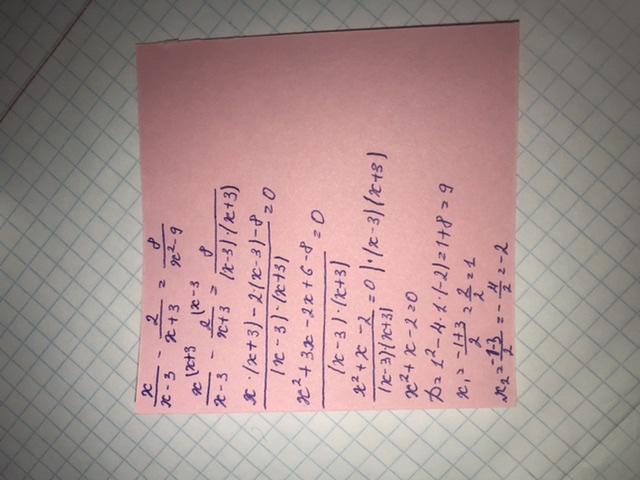 x/(x-3) - 2/(x+3) = 8/(x²-9)
x|x+3/(x-3) - 2|x-3/(x+3) = 8/((x-3)·(x+3))
(x·(x+3)-2·(x-3)-8)/((x-3)·(x+3)) = 0
(x²+3x-2x+6-8)/((x-3)·(x+3)) = 0
(x²+x-2)/((x-3)(x+3)) = 0 |·(x-3)(x+3)
x²+x-2=0
D=1²-4·1·(-2)=1+8=9
x₁=(-1+3)/2=2/2=1
x₂=(-1-3)/2=-4/2=-2